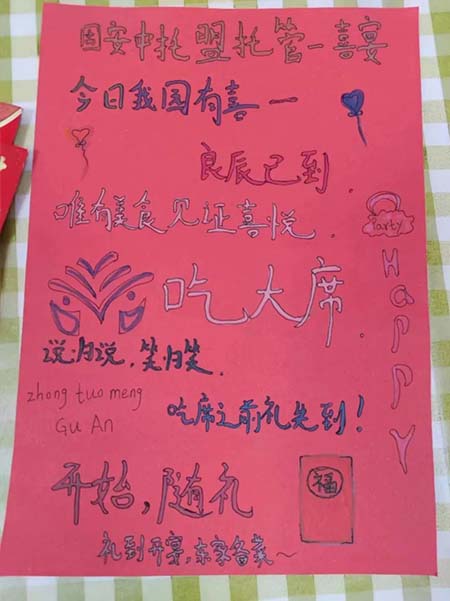 固安中托盟托管一喜宴
今日我园有喜一
良辰已到.
唯有美食见证喜悦.
Party
HAPPY
吃大席.
说归说,笑归笑.
zhong tuo meng
Gu An
吃席之前礼先到!
开始,随礼
福
礼到开宴,东家备菜~